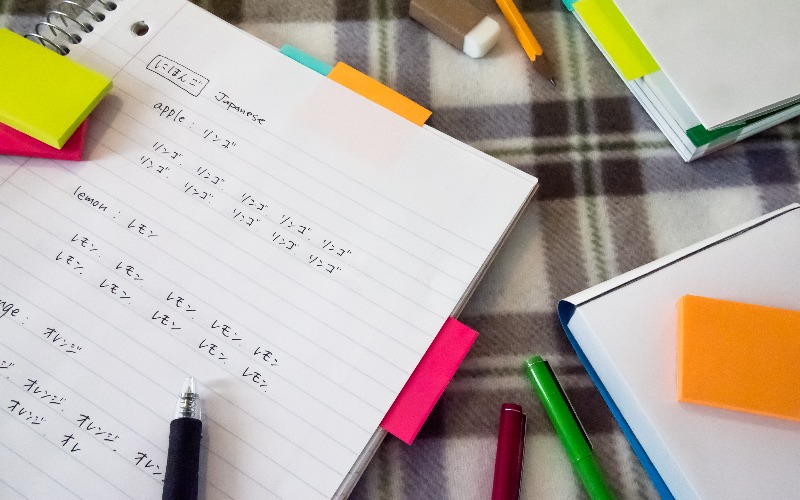 にほんご Japanese
apple : リンゴ
リンゴ リンゴ リンゴ リンゴ. リンゴ
リンゴ. リンゴ. リンゴ リンゴ リンゴ
lemon : レモン
レモン. レモン. レモン レモン レモン
レモン. レモン. レモン レモン レモン.
nge : オレンジ
オレンジ. オレンジ. オレン
オレンジ. オレ